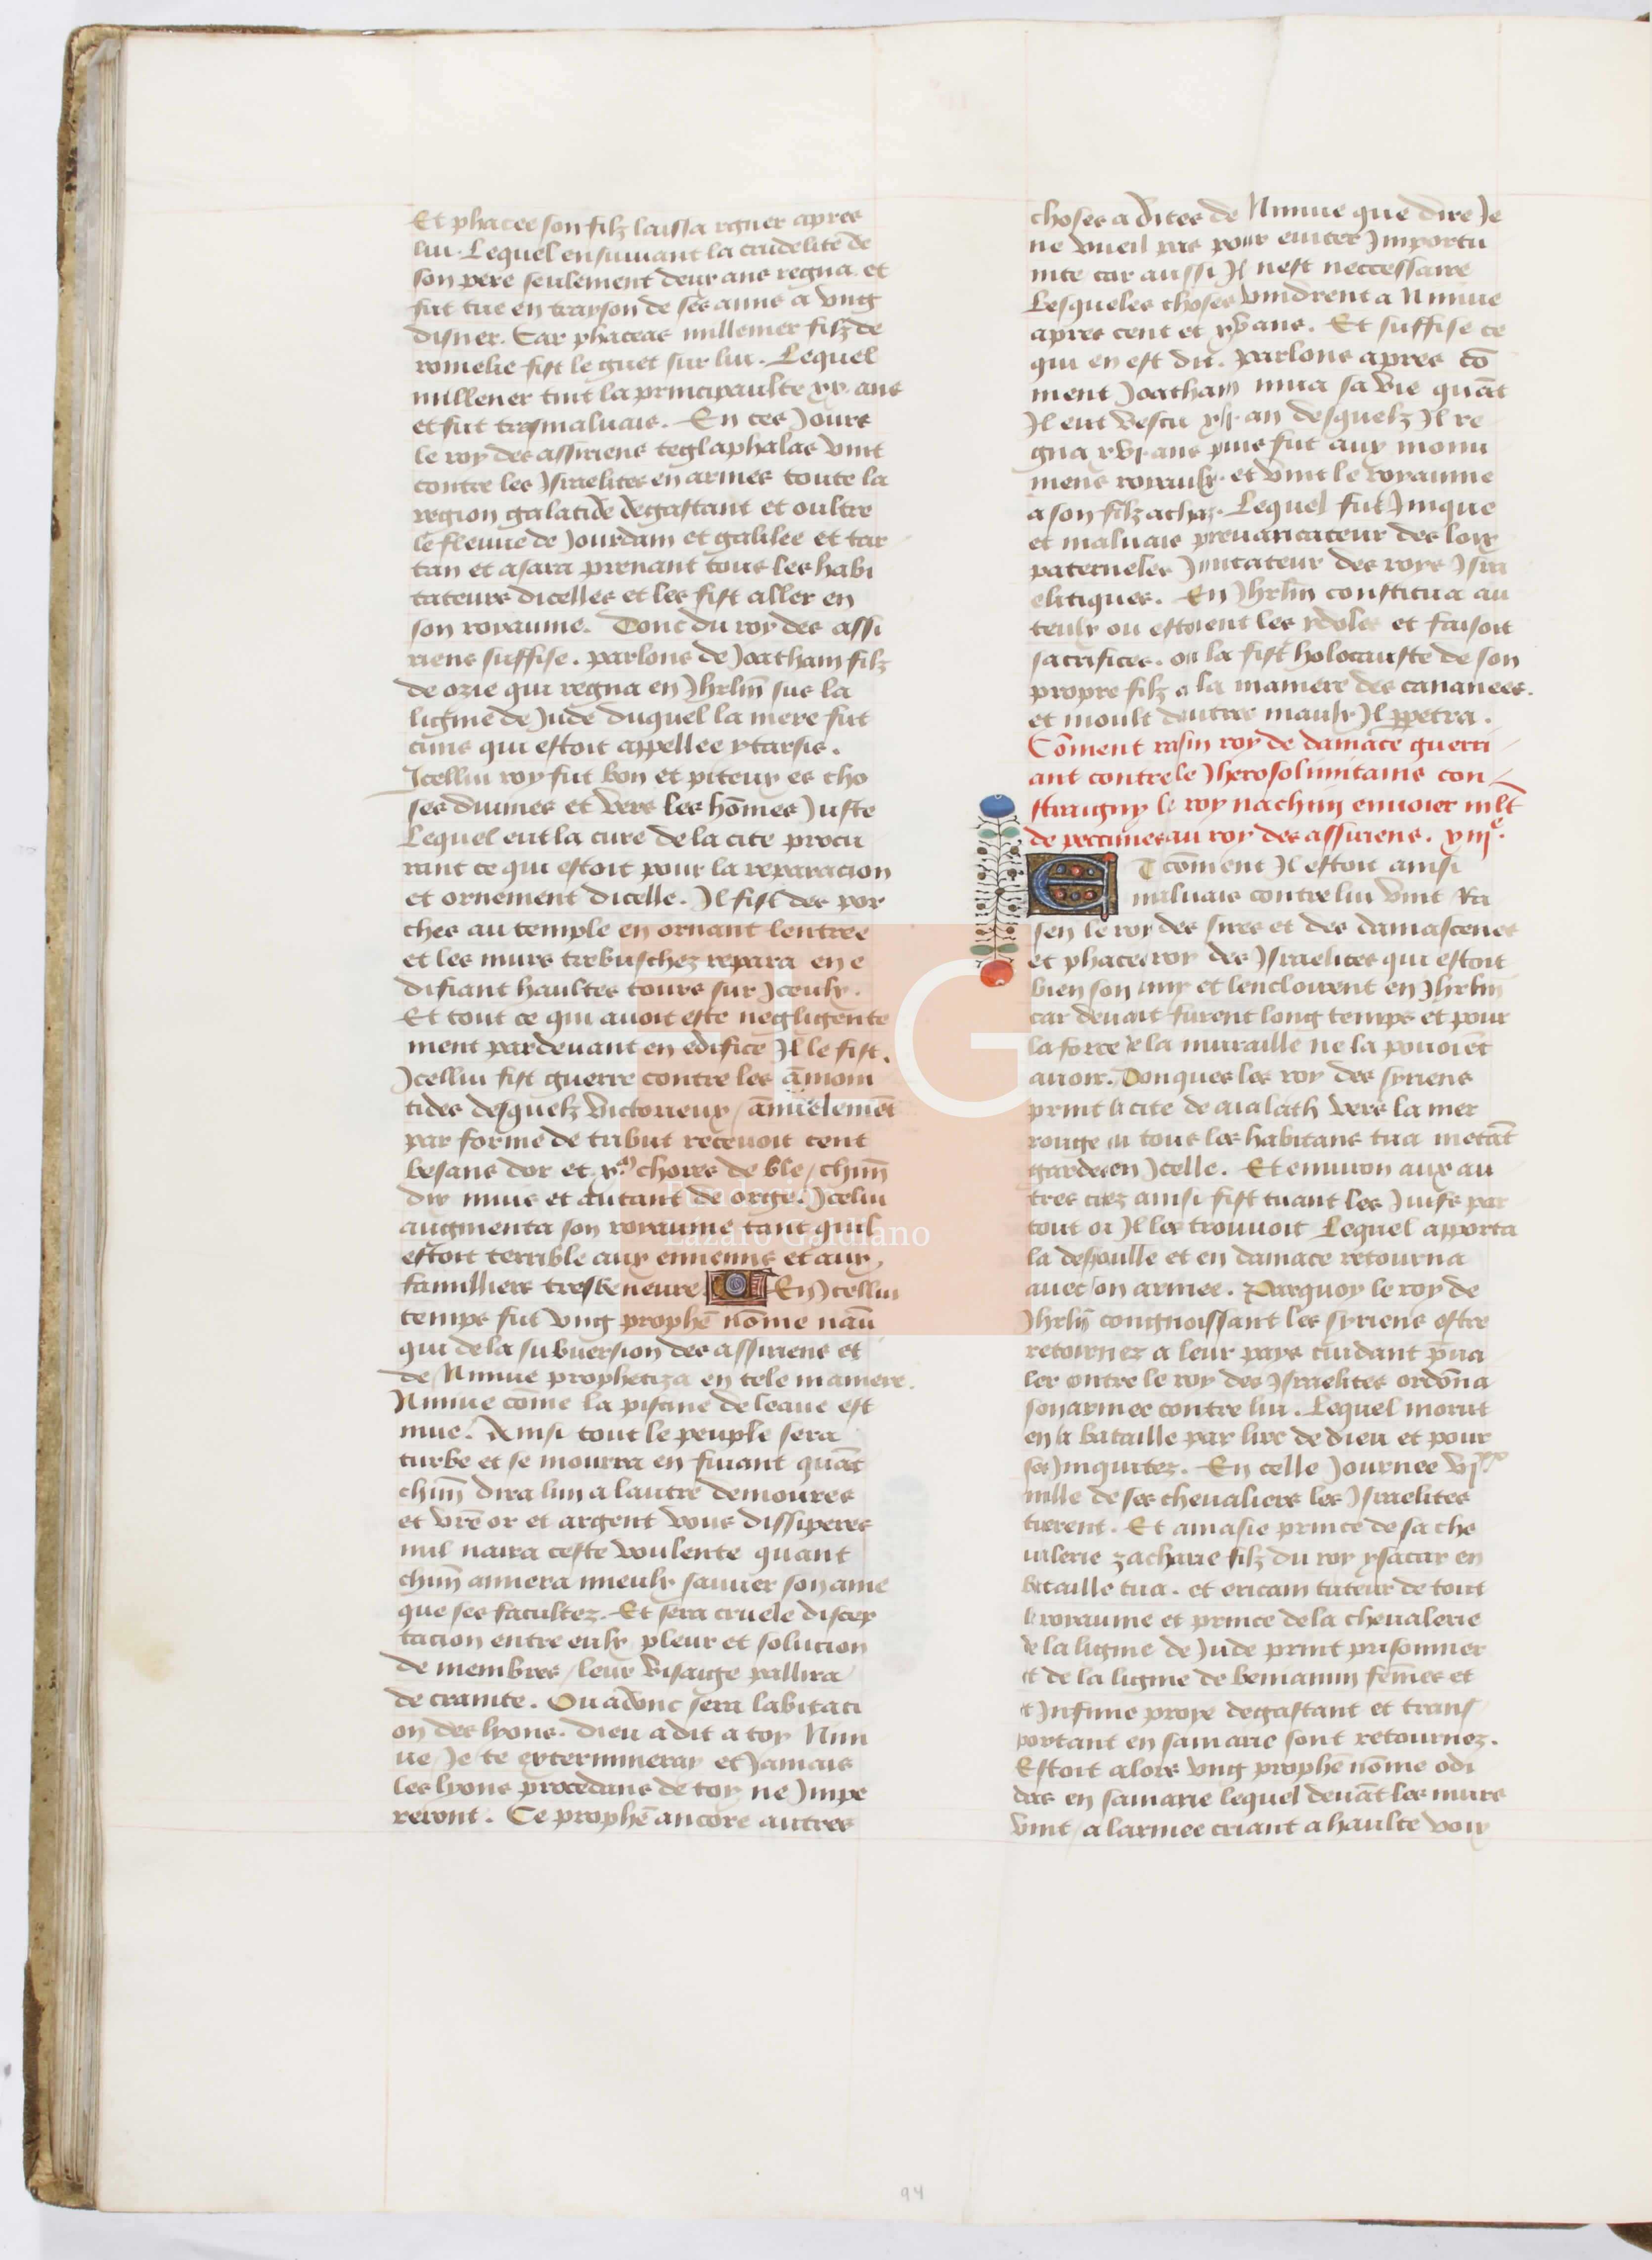 Et phacee son filz laissa regner apres
lui. Lequel ensuiuant la crudelite de
son pere seulement deux ans regna. et
fut tue en trayson de ses amis a vng
disner. Car phaceas millemer filz de
romelie fist le guet sur lui. Lequel
millener tint la principaulte xx. ans
et fut tresmaluais. En ces Jours
le roy des assiriens teglaphalas vint
contre les Israelites en armes toute la
region galatide degastant et oultre
le fleuue de Jourdam et galilee et tar
tan et asara prenant tous les habi
tateurs dicelles et les fist aller en
son royaume. Donc du roy des assi
riens suffise. parlons de Joatham filz
de ozie qui regna en Jhrlm̄ sus la
ligme de Jude duquel la mere fut
cuns qui estoit appellee ytarsis.
Icellui roy fut bon et piteux es cho
ses diuines et vers les hōmes Juste
Lequel eut la cure de la cite procu
rant ce qui estoit pour la reparacion
et ornement dicelle. Il fist des por
ches au temple en ornant lentree
et les murs trebuschez repara en e
difiant haultes tours sur Iceulx.
Et tout ce qui auoit este negligente
ment pardeuant en edifice Il le fist.
Icellui fist guerre contre les āmom
tides desquelz victorieux / ānuelemēt
par forme de tribut receuoit cent
besans dor et xͫ chores de ble / chm̄
dix muis et autant de orge. Icelui
augmenta son royaume tant quil
estoit terrible aux ennemis et aux
familliers tresbeneure. En Icellui
temps fut vng prophē nōme naū
qui de la subuersion des assiriens et
de Niniue prophetiza en tele maniere.
Niniue cōme la piscine de leaue est
mue. Ainsi tout le peuple sera
turbe et se mourra en fuiant quāt
chm̄ dira lun a lautre demoures
et vrē or et argent vous dissiperes
nul naira ceste voulente quant
chm̄ aimera mieulx sauuer son ame
que ses facultez. Et sera cruele discep
tacion entre eulx pleur et solucion
de membres / leur visaige pallira
de crainte. Ou adonc sera labitaci
on des lyons. dieu a dit a toy Nini
ue / Je te extermineray et Jamais
les lyons procedans de toy ne Impe
reront. Ce prophē ancore autres
choses a dites de Niniue que dire Je
ne vueil pas pour euiter Importu
nite car aussi Il nest neccessaire
Lesqueles choses vindrent a Niniue
apres cent et xv ans. Et suffise ce
qui en est dit. parlons apres cō
ment Joatham mua sa vie quāt
Il eut vescu xlj. an desquelz Il re
gna xvj. ans puis fut aux monu
mens royaulx. et vint le royaume
a son filz achaz. Lequel fut Inique
et maluais preuaricateur des loix
paterneles Imitateur des roys Isra
elitiques. En Jhrlm̄ constitua au
teulx ou estoient les ydoles et faisoit
sacrifices. ou la fist holocauste de son
propre filz a la maniere des cananees.
et moult dautres maulx Il ꝑpetra.
Cōment rasin roy de damace guerri
ant contre le Iherosolimitains con
straingny le roy nachim enuoier mlt̄
de peccunes au roy des assiriens. xiijͤ.
ET cōment Il estoit ainsi
maluais contre lui vint Ra
sen le roy des sires et des damascenes
et phacee roy des Israelites qui estoit
bien son amy et lenclouirent en Jhrlm̄
car deuant furent long temps et pour
la force de la muraille ne la pouoiēt
auoir. Donques les roy des syriens
print la cite de aialath vers la mer
rouge ou tous les habitans tua metāt
gardes en Icelle. Et enuiron aux au
tres citez ainsi fist tuant les Juifs par
tout ou Il les trouuoit Lequel apporta
la despoulle et en damace retourna
auec son armee. Parquoy le roy de
Jhrlm̄ congnoissant les syriens estre
retournez a leur pays cuidant p̄ua
ler contre le roy des Israelites ordōna
son armee contre lui. Lequel morut
en la bataille par lire de dieu et pour
ses Iniquitez. En celle Journee vjͯͯ
mille de ses cheualiers les Israelites
tuerent. Et amasie prince de sa che
ualerie zacharie filz du roy ysacar en
bataille tua. et ericam tuteur de tout
le royaume et prince de la cheualerie
de la ligme de Jude print prisonnier
et de la ligme de beniamin fem̄es et
et Infinie proye degastant et trans
portant en samarie sont retournez.
Estoit alors vng prophē nōme odi
das en samarie lequel deuāt les murs
vint / a larmee criant a haulte voix
LG
Fundación
Lázaro Galdiano
94